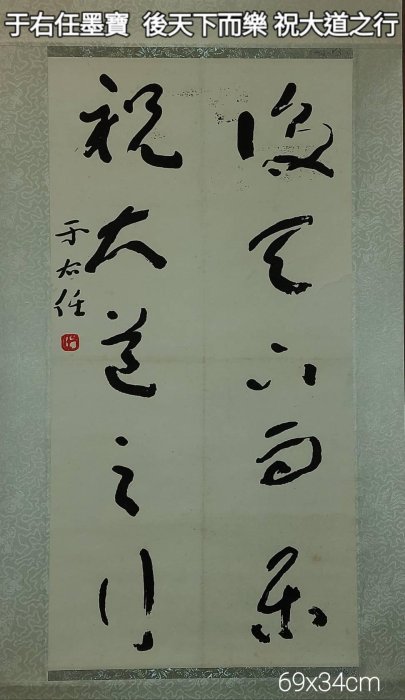 于右任墨寶 後天下而樂 祝大道之行
後天下而樂
祝大道之行
于右任
69x34cm